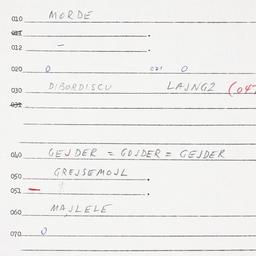 010 MORDE
011
012 –
020 0 021 0
030 DIBORDISCU LAJNG2 (047
032
040 GEJDER = GOJDER = GEJDER
050 GREJSEMOJL
051 –
060 MAJLELE
070 0